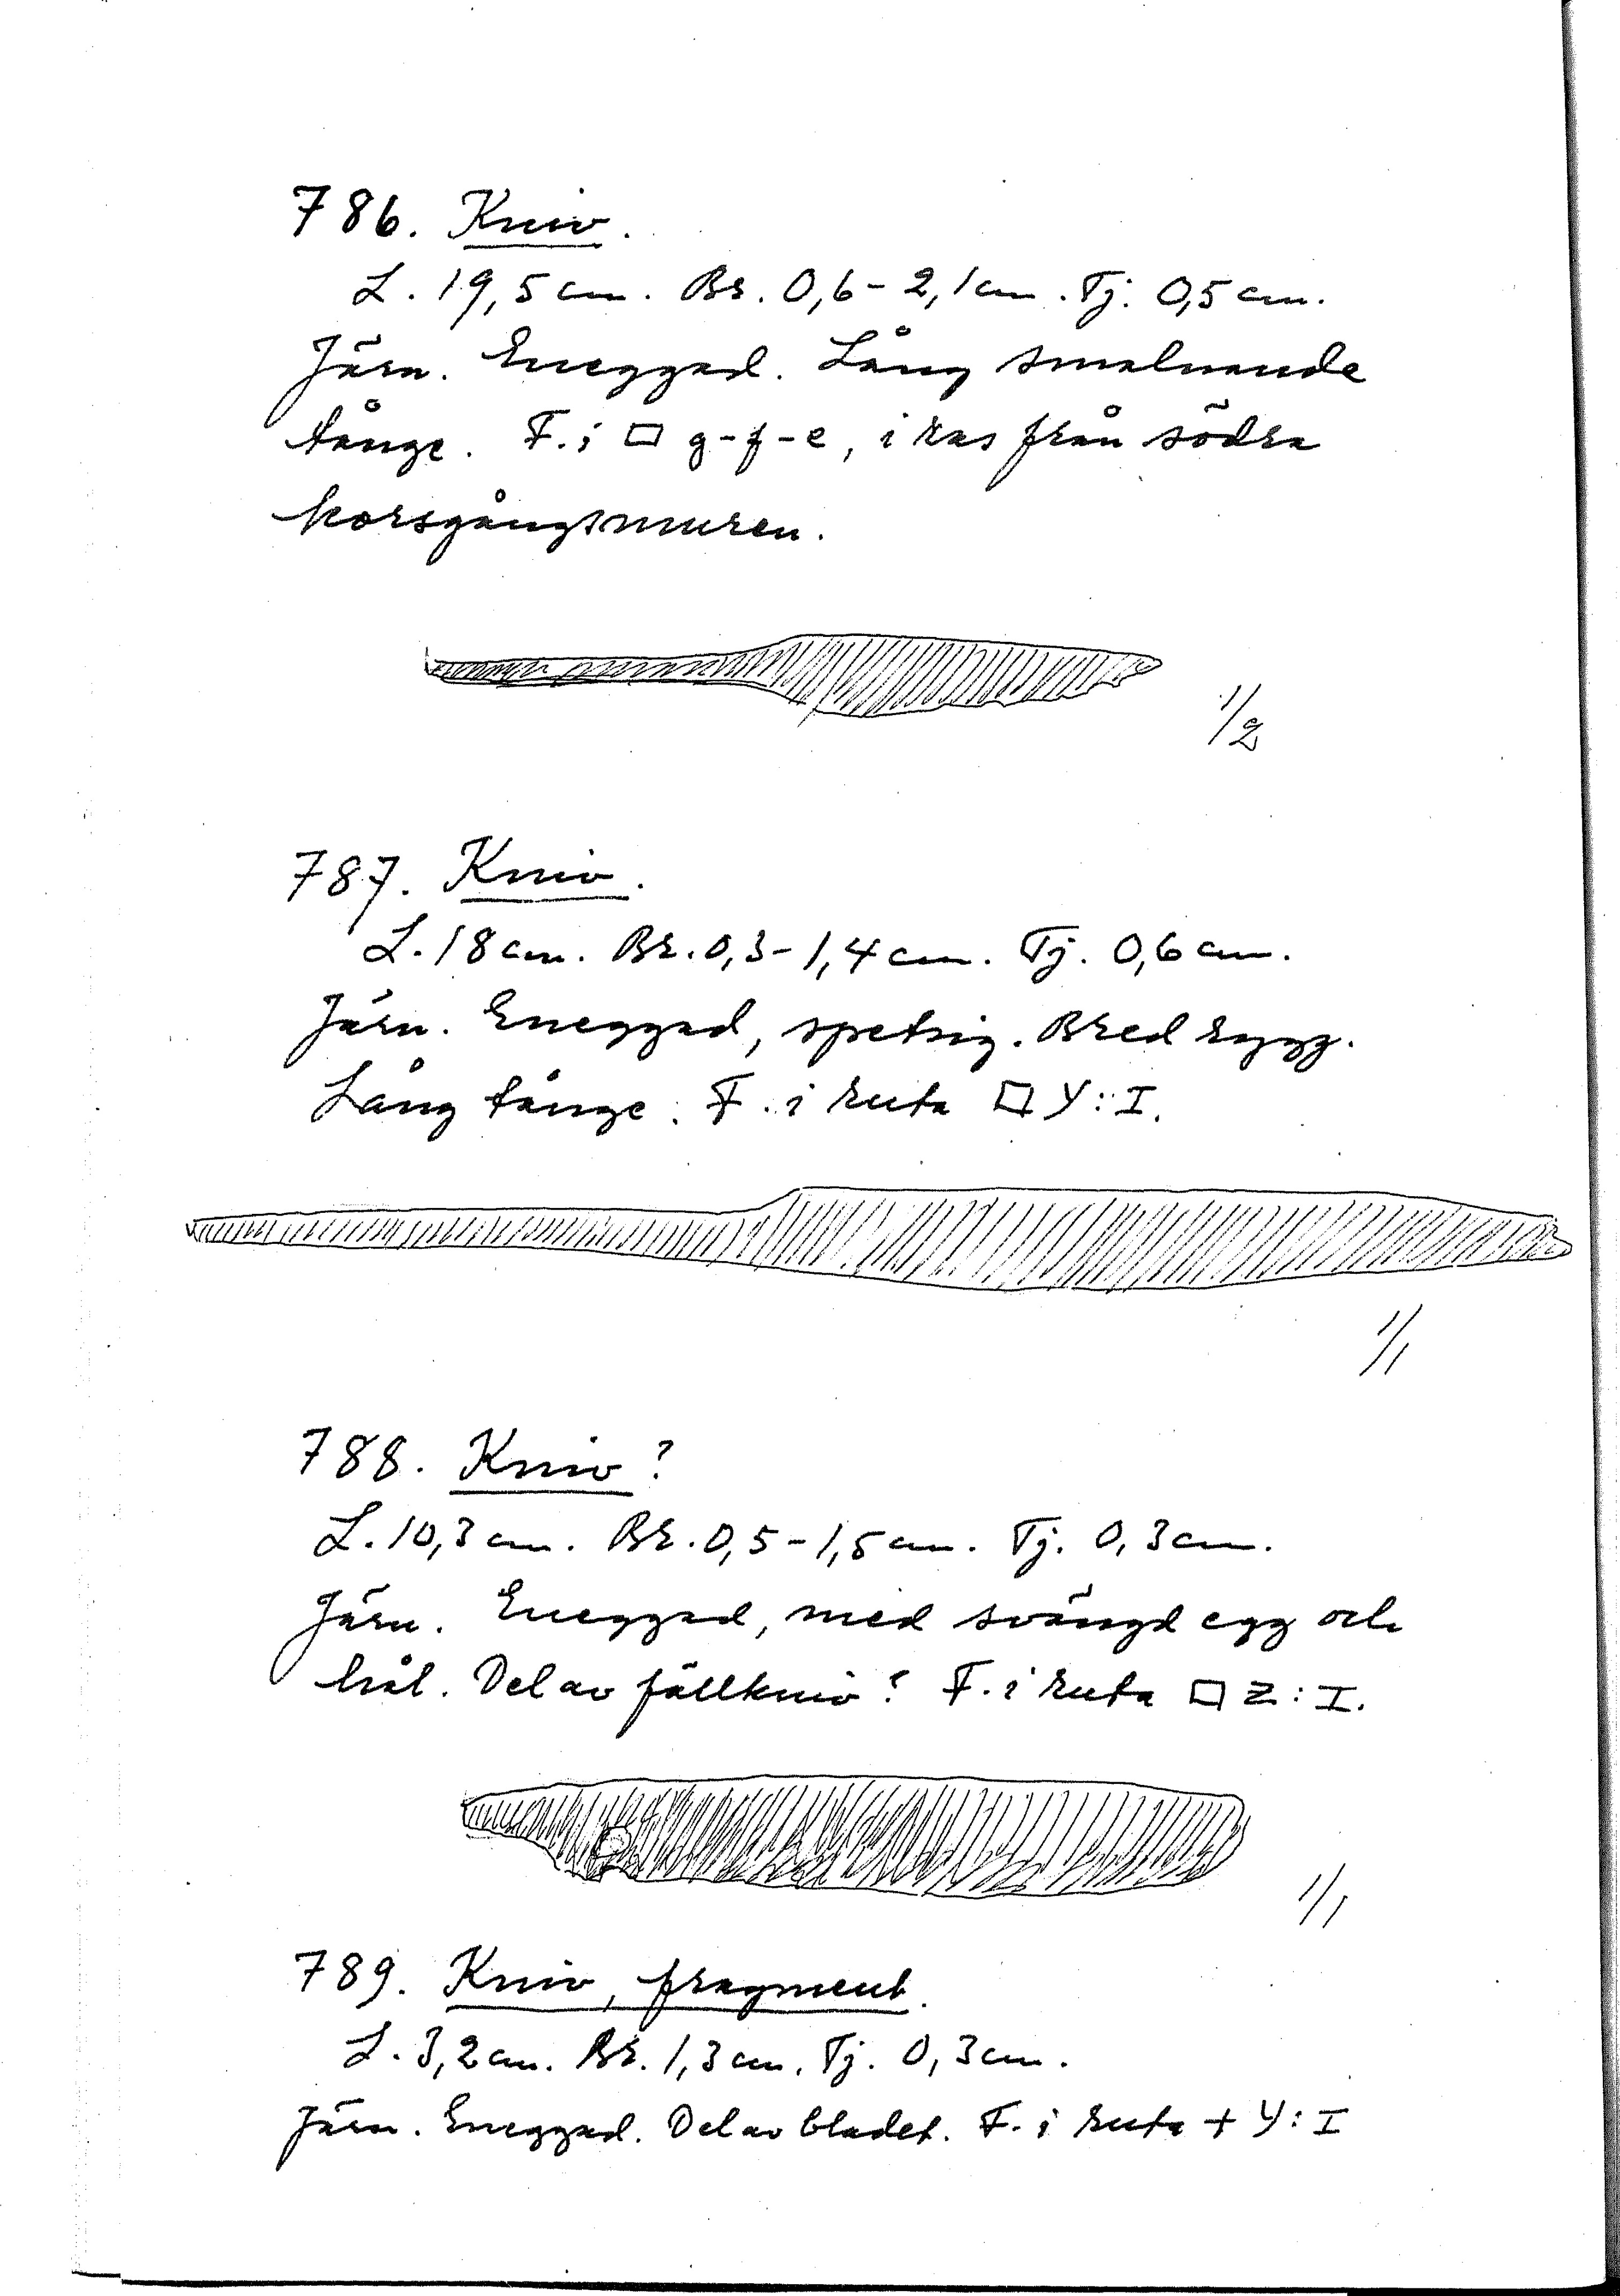 786. Kniv.
L. 19,5 cm. Br. 0,6 - 2,1 cm. Tj. 0,5 cm.
Järn. Eneggad. Lång smalnande
tånge. F. i □ g-f-e, i ras från södra
korsgångsmuren.
1/2
787. Kniv.
L. 18 cm. Br. 0,3 - 1,4 cm. Tj. 0,6 cm.
Järn. Eneggad, spetsig. Bred rygg.
Lång tånge. F. i ruta □ Y: I.
1/1
788. Kniv?
L. 10,3 cm. Br. 0,5 - 1,5 cm. Tj. 0,3 cm.
Järn. Eneggad, med svängd egg och
hål. Del av fällkniv? F. i ruta □ Z: I.
1/1
789. Kniv, fragment.
L. 3,2 cm. Br. 1,3 cm. Tj. 0,3 cm.
Järn. Eneggad. Del av bladet. F. i ruta + Y: I